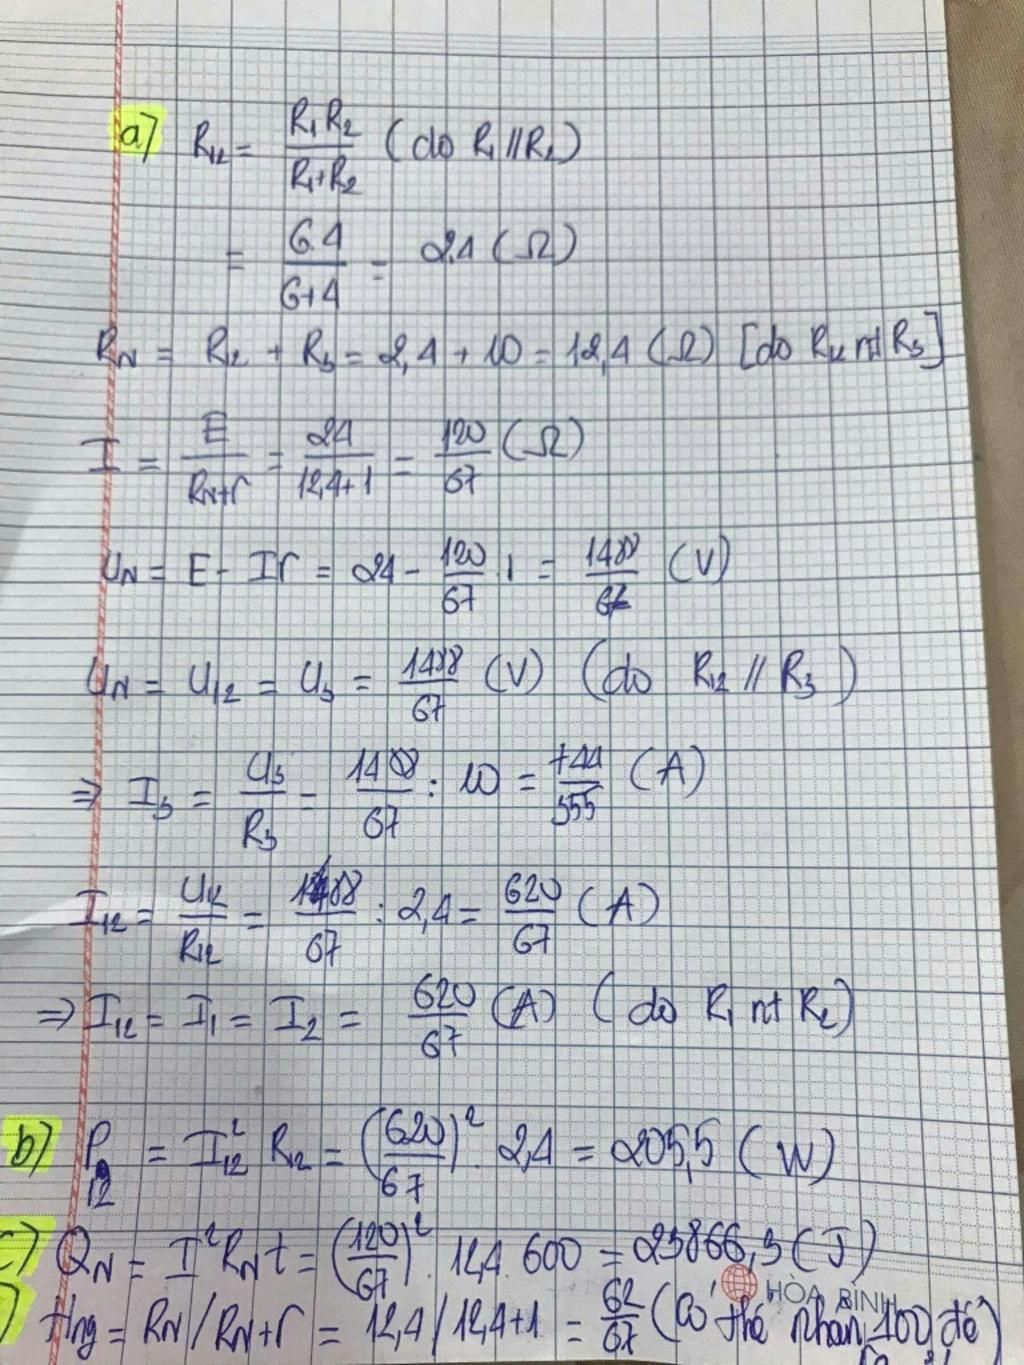 a) R₁₂ = R₁R₂ / R₁+R₂ (do R₁ // R₂)
= 6.4 / 6+4 = 2,4 (Ω)
R_N = R₁₂ + R₃ = 2,4 + 10 = 12,4 (Ω) [do R₁₂ nt R₃]
I = E / R_N+r = 24 / 12,4+1 = 120/67 (Ω)
U_N = E - Ir = 24 - 120/67 . 1 = 1488/67 (V)
U_N = U₁₂ = U₃ = 1488/67 (V) (do R₁₂ // R₃)
⇒ I₃ = U₃/R₃ = 1488/67 : 10 = 744/335 (A)
I₁₂ = U₁₂/R₁₂ = 1488/67 : 2,4 = 620/67 (A)
⇒ I₁₂ = I₁ = I₂ = 620/67 (A) (do R₁ nt R₂)
b) P₁₂ = I₁₂² R₁₂ = (620/67)² . 2,4 = 205,5 (W)
c) Q_N = I² R_N t = (120/67)² . 12,4 . 600 = 23866,3 (J)
Hng = R_N / R_N+r = 12,4 / 12,4+1 = 62/67 (Có thể nhân 100 để)
HÒA BÌNH